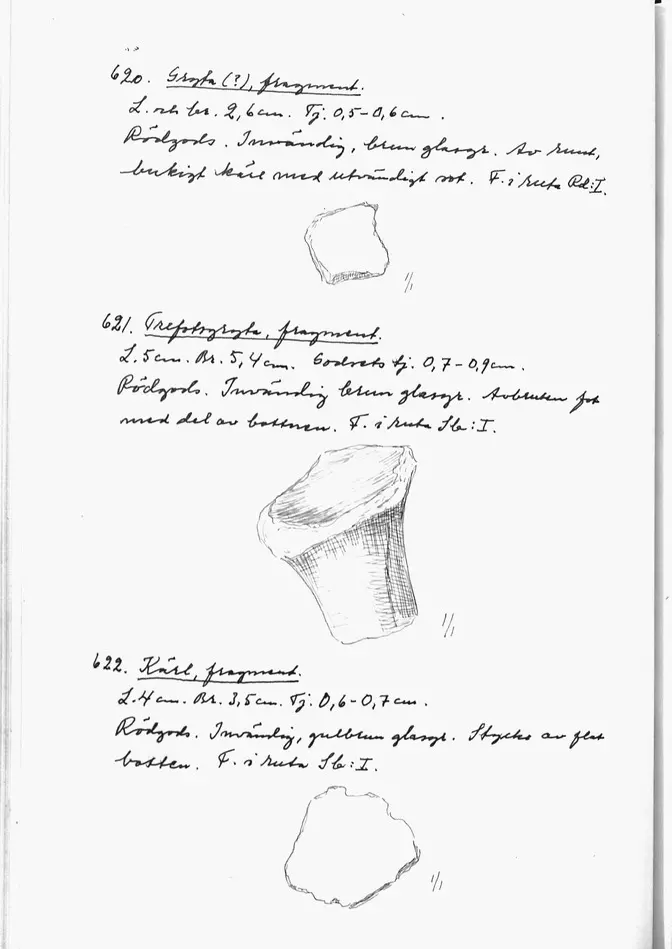 620. Gryta (?), fragment.
L. och br. 2,6 cm. Tj. 0,5-0,6 cm.
Rödgods. Invändig, brun glasyr. Av runt,
bukigt kärl med utvändigt sot. F. i ruta Rd:I.
1/1
621. Trefotsgryta, fragment.
L. 5 cm. Br. 5,4 cm. Godsets tj. 0,7-0,9 cm.
Rödgods. Invändig brun glasyr. Avbruten fot
med del av bottnen. F. i ruta Sb:I.
1/1
622. Kärl, fragment.
L. 4 cm. Br. 3,5 cm. Tj. 0,6-0,7 cm.
Rödgods. Invändig, gulbrun glasyr. Stycke av flat
botten. F. i ruta Sb:I.
1/1